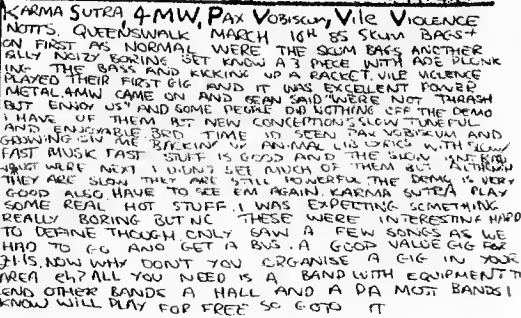 KARMA SUTRA, 4-MW, PAX VOBISCUM, VILE VIOLENCE
NOTTS. QUEENSWALK MARCH 16TH 85 SKUM BAGS +
ON FIRST AS NORMAL WERE THE SKUM BAGS ANOTHER
SILLY NOIZY BORING SET KNOW A 3 PIECE WITH ADE PLONK
ING THE BASS AND KICKING UP A RACKET. VILE VIOLENCE
PLAYED THEIR FIRST GIG AND IT WAS EXCELLENT POWER
METAL. 4MW CAME ON AND SEAN SAID "WERE NOT THRASH
BUT ENJOY US" AND SOME PEOPLE DID NOTHING OFF THE DEMO
I HAVE OF THEM BUT NEW CONCEPTIONS SLOW TUNEFUL
AND ENJOYABLE. 3RD TIME ID SEEN PAX VOBISCUM AND
GROWING ON ME BACKIN' UP ANIMAL LIB LYRICS WITH SLOW/
FAST MUSIC FAST STUFF IS GOOD AND THE SLOW ISNT BAD
WERE NEXT I DIDN'T SEE MUCH OF THEM BUT ALTHOUGH
THEY ARE SLOW THEY ARE STILL POWERFUL. THE DEMO IS VERY
GOOD ALSO. HAVE TO SEE EM AGAIN. KARMA SUTRA PLAY
SOME REAL HOT STUFF. I WAS EXPECTING SOMETHING
REALLY BORING BUT NO THESE WERE INTERESTING HARD
TO DEFINE THOUGH. ONLY SAW A FEW SONGS AS WE
HAD TO GO AND GET A BUS. A GOOD VALUE GIG FOR
£1.15. NOW WHY DON'T YOU ORGANISE A GIG IN YOUR
AREA EH? ALL YOU NEED IS A BAND WITH EQUIPMENT TO
LEND OTHER BANDS A HALL AND A PA MOST BANDS I
KNOW WILL PLAY FOR FREE SO GOTO IT